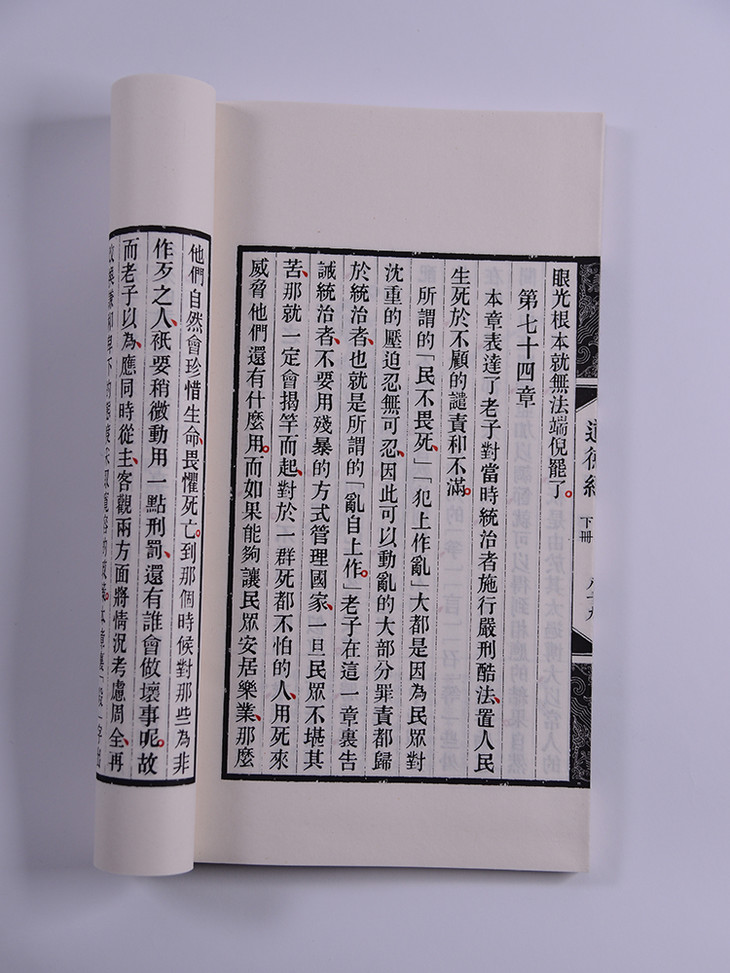 道德經
下冊
眼光根本就無法端倪罷了。
第七十四章
本章表達了老子對當時統治者施行嚴刑酷法、置人民
生死於不顧的譴責和不滿。
所謂的「民不畏死」、「犯上作亂」大都是因為民眾對
沈重的壓迫忍無可忍、因此可以動亂的大部分罪責都歸
於統治者、也就是所謂的「亂自上作」。老子在這一章裏告
誡統治者、不要用殘暴的方式管理國家、一旦民眾不堪其
苦、那就一定會揭竿而起、對於一群死都不怕的人、用死來
威脅他們還有什麼用。而如果能夠讓民眾安居樂業、那麼
他們自然會珍惜生命、畏懼死亡。到那個時候對那些為非
作歹之人、衹要稍微動用一點刑罰、還有誰會做壞事呢。故
而老子以為、應同時從主、客觀兩方面將情況考慮周全、再